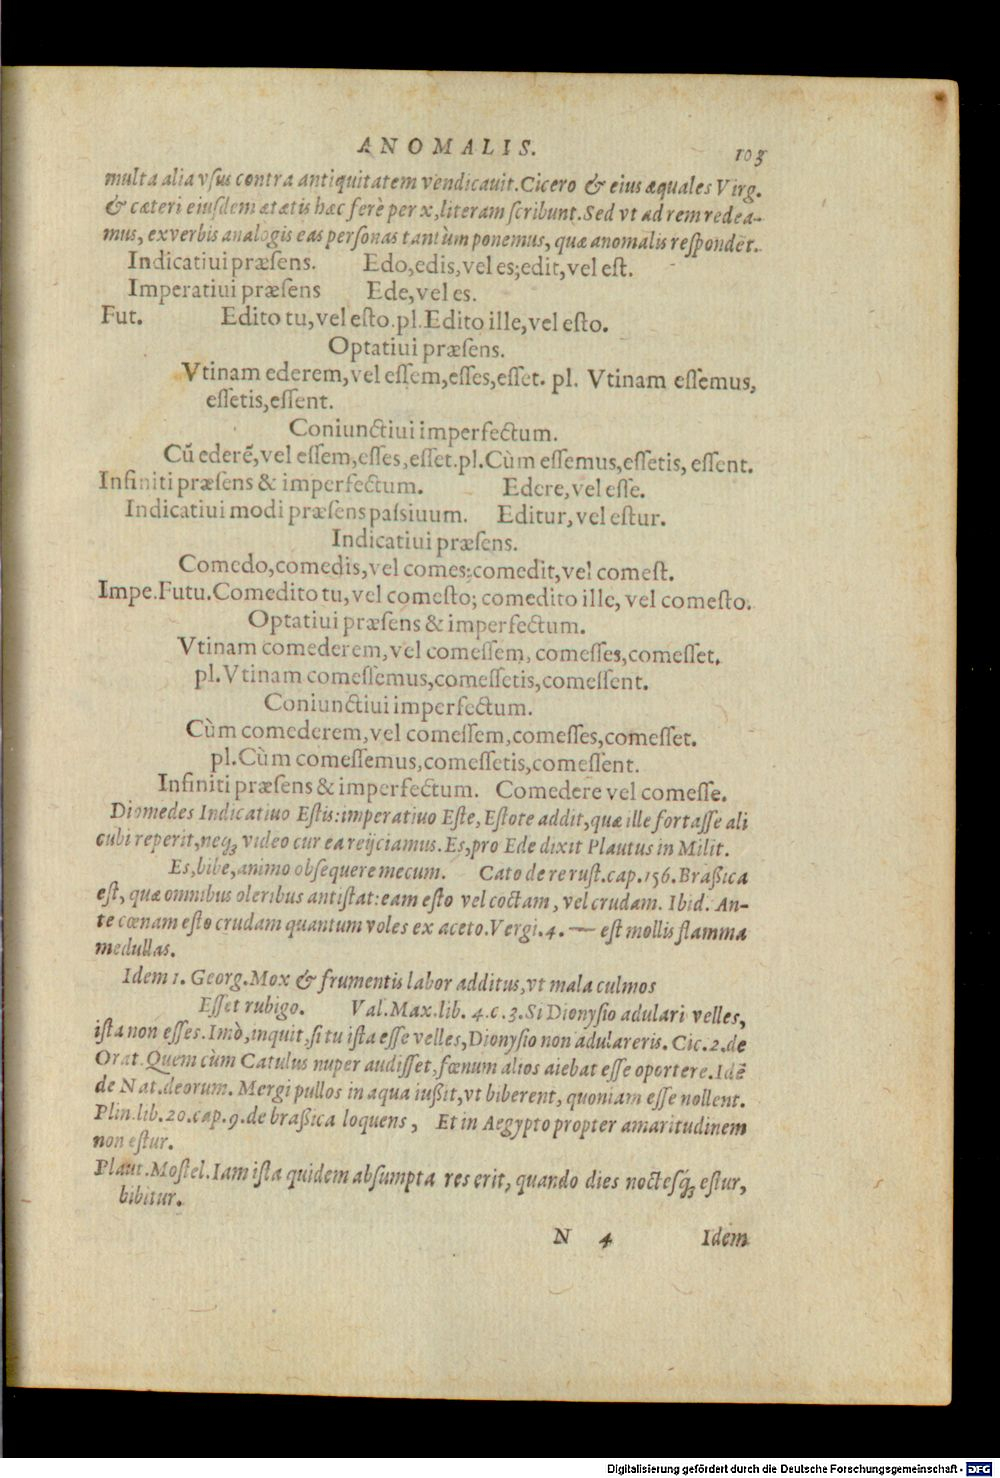 ANOMALIS. 103
multa alia vſus contra antiquitatem vendicauit. Cicero & eius æquales Virg.
& cæteri eiuſdem ætatis hæc ferè per x, literam ſcribunt. Sed vt ad rem redea-
mus, ex verbis analogis eas perſonas tantùm ponemus, quæ anomalis reſpondēt.
Indicatiui præſens. Edo, edis, vel es; edit, vel eſt.
Imperatiui præſens Ede, vel es.
Fut. Edito tu, vel eſto. pl. Edito ille, vel eſto.
Optatiui præſens.
Vtinam ederem, vel eſſem, eſſes, eſſet. pl. Vtinam eſſemus,
eſſetis, eſſent.
Coniunctiui imperfectum.
Cū ederē, vel eſſem, eſſes, eſſet. pl. Cùm eſſemus, eſſetis, eſſent.
Infiniti præſens & imperfectum. Edere, vel eſſe.
Indicatiui modi præſens paſsiuum. Editur, vel eſtur.
Indicatiui præſens.
Comedo, comedis, vel comes; comedit, vel comeſt.
Impe. Futu. Comedito tu, vel comeſto; comedito ille, vel comeſto.
Optatiui præſens & imperfectum.
Vtinam comederem, vel comeſſem, comeſſes, comeſſet.
pl. Vtinam comeſſemus, comeſſetis, comeſſent.
Coniunctiui imperfectum.
Cùm comederem, vel comeſſem, comeſſes, comeſſet.
pl. Cùm comeſſemus, comeſſetis, comeſſent.
Infiniti præſens & imperfectum. Comedere vel comeſſe.
Diomedes Indicatiuo Eſtis: imperatiuo Eſte, Eſtote addit, quæ ille fortaſſe ali
cubi reperit, neqꝫ video cur ea reijciamus. Es, pro Ede dixit Plautus in Milit.
Es, bibe, animo obſequere mecum. Cato de re ruſt. cap. 156. Braßica
eſt, quæ omnibus oleribus antiſtat: eam eſto vel coctam, vel crudam. Ibid. An-
te cœnam eſto crudam quantum voles ex aceto. Vergi. 4. — eſt mollis flamma
medullas.
Idem 1. Georg. Mox & frumentis labor additus, vt mala culmos
Eſſet rubigo. Val. Max. lib. 4. c. 3. Si Dionyſio adulari velles,
iſta non eſſes. Imò, inquit, ſi tu iſta eſſe velles, Dionyſio non adulareris. Cic. 2. de
Orat. Quem cùm Catulus nuper audiſſet, fœnum alios aiebat eſſe oportere. Idē
de Nat. deorum. Mergi pullos in aqua iußit, vt biberent, quoniam eſſe nollent.
Plin. lib. 20. cap. 9. de braßica loquens, Et in Aegypto propter amaritudinem
non eſtur.
Plaut. Moſtel. Iam iſta quidem abſumpta res erit, quando dies nocteſq́ꝫ eſtur,
bibitur.
N 4 Idem
Digitalisierung gefördert durch die Deutsche Forschungsgemeinschaft - DFG